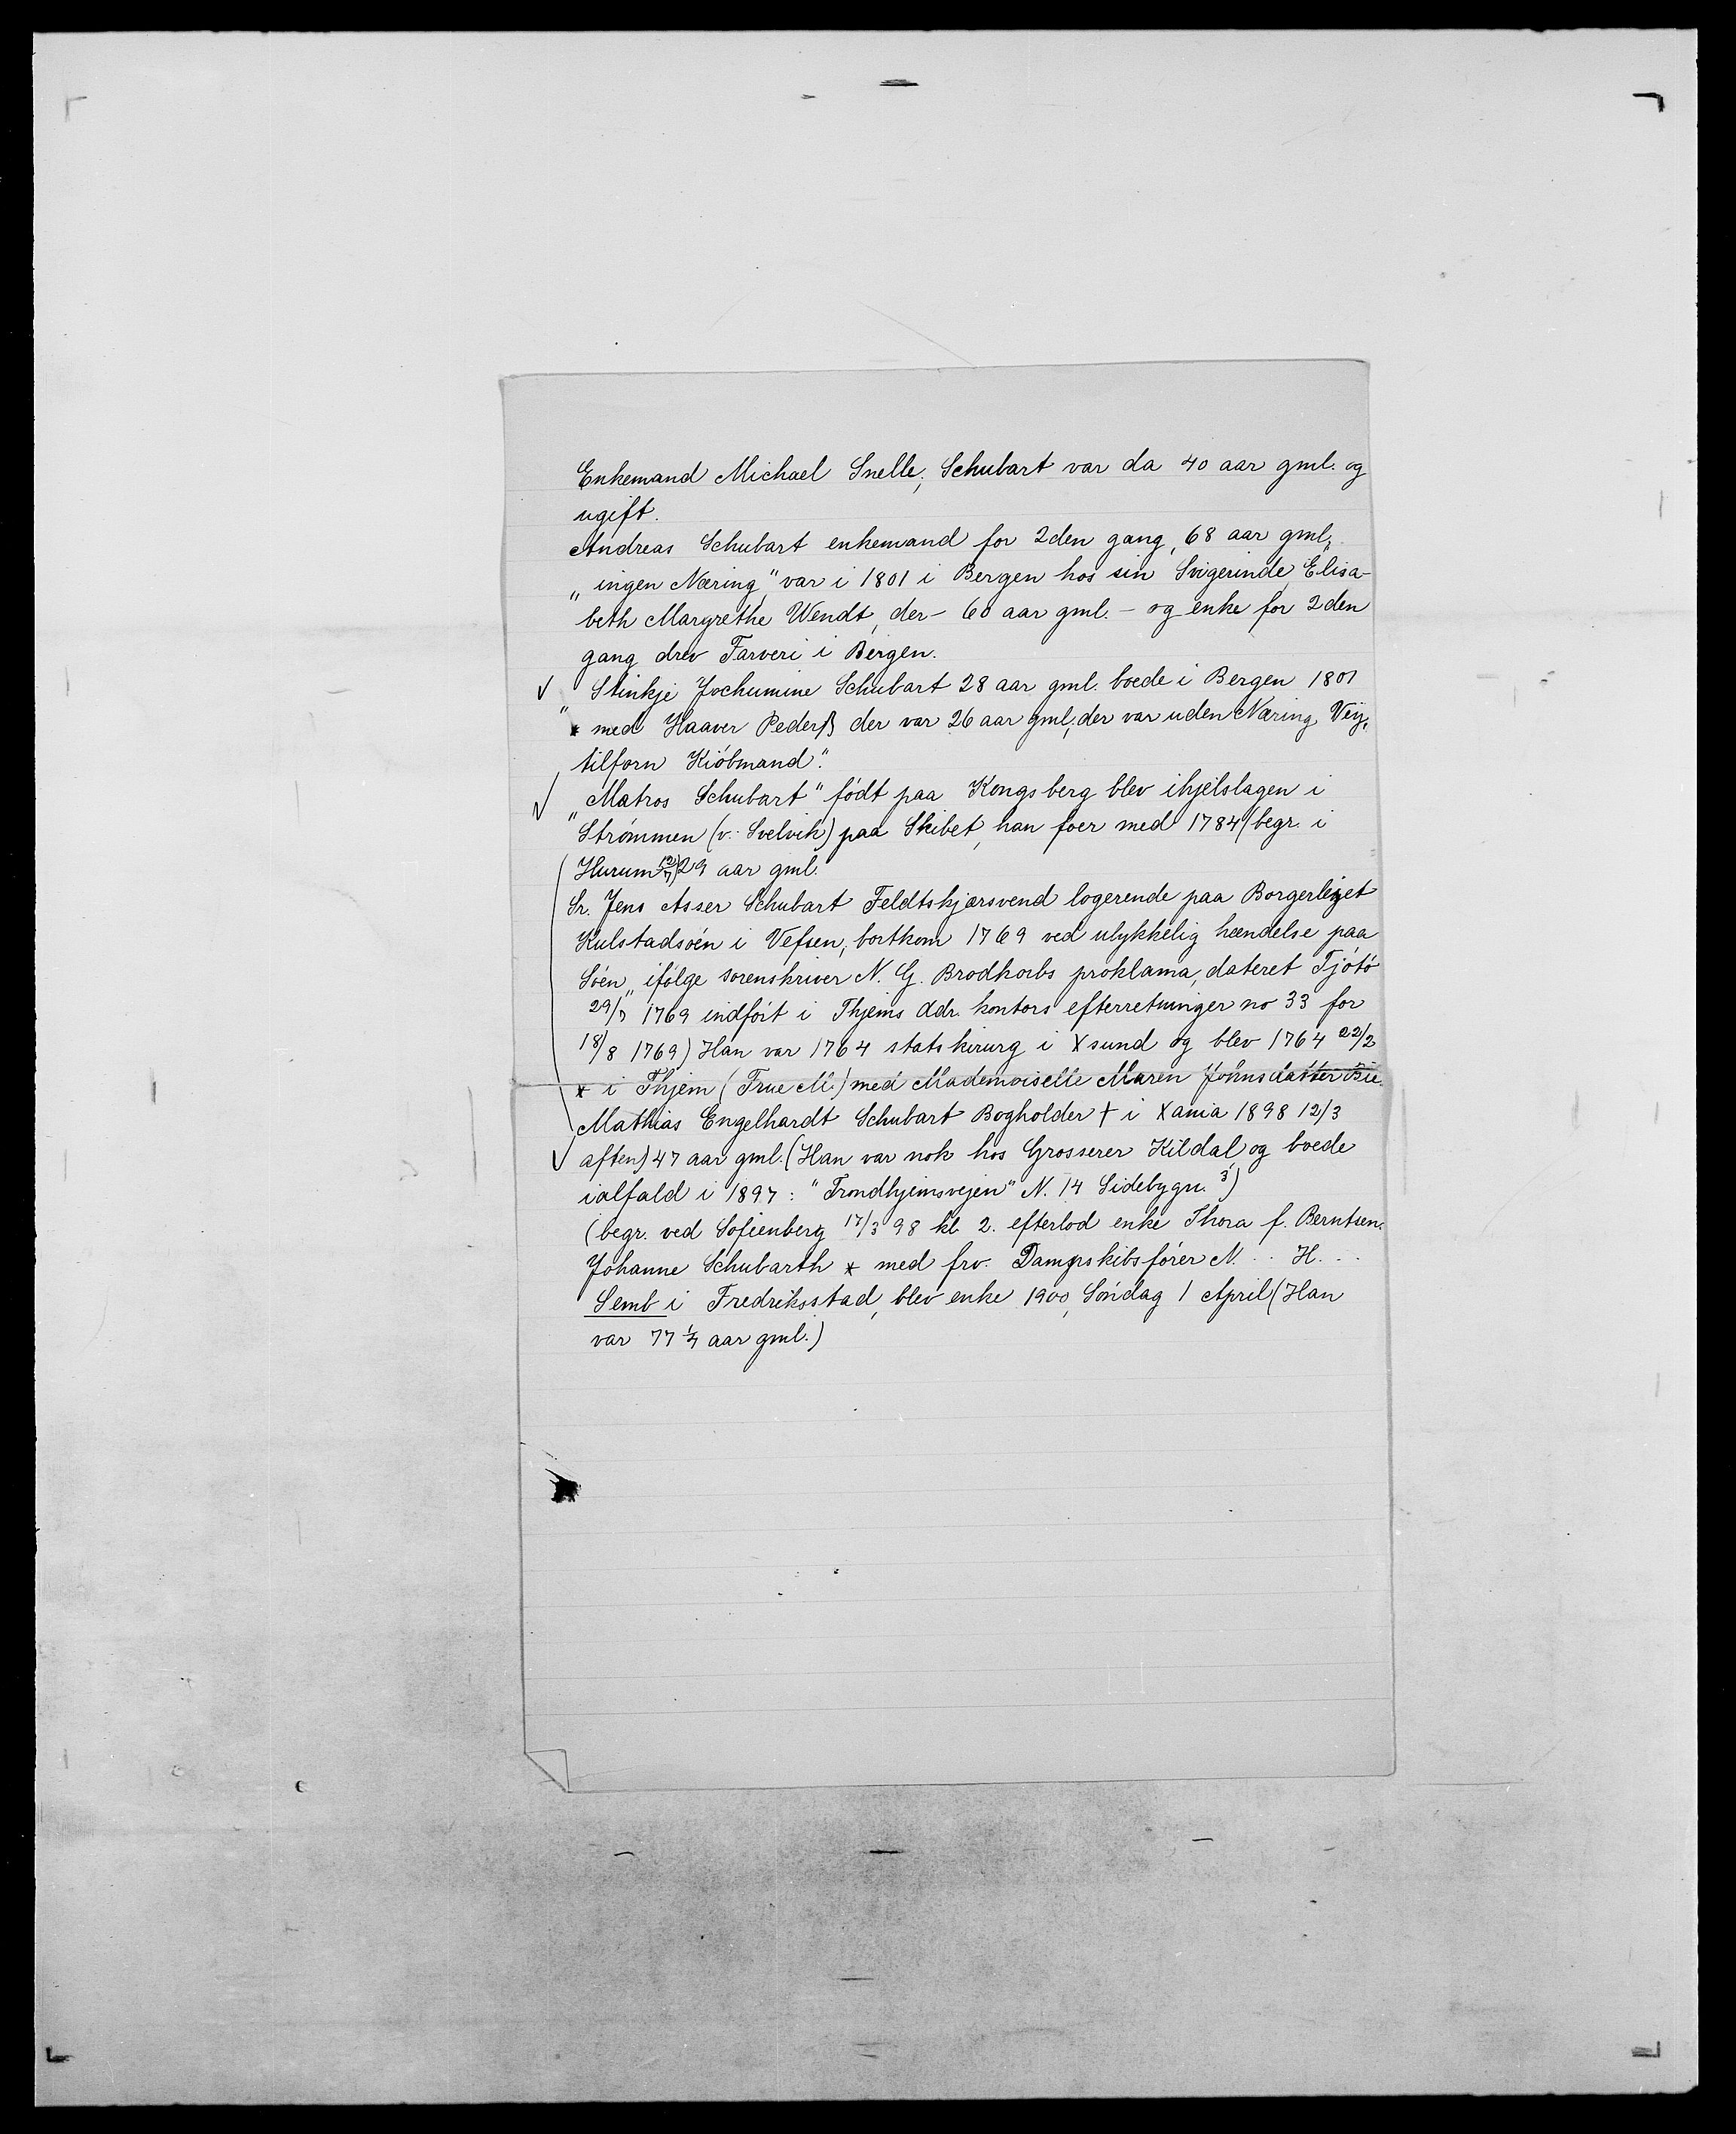 Enkemand Michael Snelle; Schubart var da 40 aar gml. og
ugift.
Andreas Schubart enkemand for 2den gang, 68 aar gml,
„ingen Næring" var i 1801 i Bergen hos sin Svigerinde, Elisa-
beth Margrethe Wendt, der - 60 aar gml. - og enke for 2den
gang drev Farveri i Bergen.
✓ Stinkje Jochumine Schubart 28 aar gml. boede i Bergen 1801
* med Haaver Pederß der var 26 aar gml, der var „uden Næring Vey,
tilforn Kiöbmand".
✓ „Matros Schubart" födt paa Kongsberg blev ihjelslagen i
Strömmen (v. Svelvik) paa Skibet, han foer med 1784 (begr. i
Hurum 12/7) 29 aar gml.
(Sr. Jens Asser Schubart Feldtskjærsvend logerende paa Borgerleyet
Kulstadsöen i Vefsen, „bortkom 1769 ved ulykkelig hændelse paa
Söen" ifölge sorenskriver N. G. Brodkorbs proklama, dateret Tjötö
29/7 1769 indfört i Thjems Adr. kontors efterretninger no 33 for
18/8 1769) Han var 1764 stats kirurg i Xsund og blev 1764 22/2
* i Thjem (Frue M.) med Mademoiselle Maren Johnsdatter Bie.
Mathias Engelhardt Schubart Bogholder † i Xania 1898 12/3
✓ aften) 47 aar gml. (Han var nok hos Grosserer Kildal og boede
ialfald i 1897: "Trondhjemsvejen" N. 14 Sidebygn. 3)
(begr. ved Sofienberg 17/3 98 kl. 2. efterlod enke Thora f. Berntsen.
Johanne Schubarth * med frv. Dampskibsförer N... H...
Semb i Fredriksstad, blev enke 1900, Söndag 1 April (Han
var 77 1/4 aar gml.)